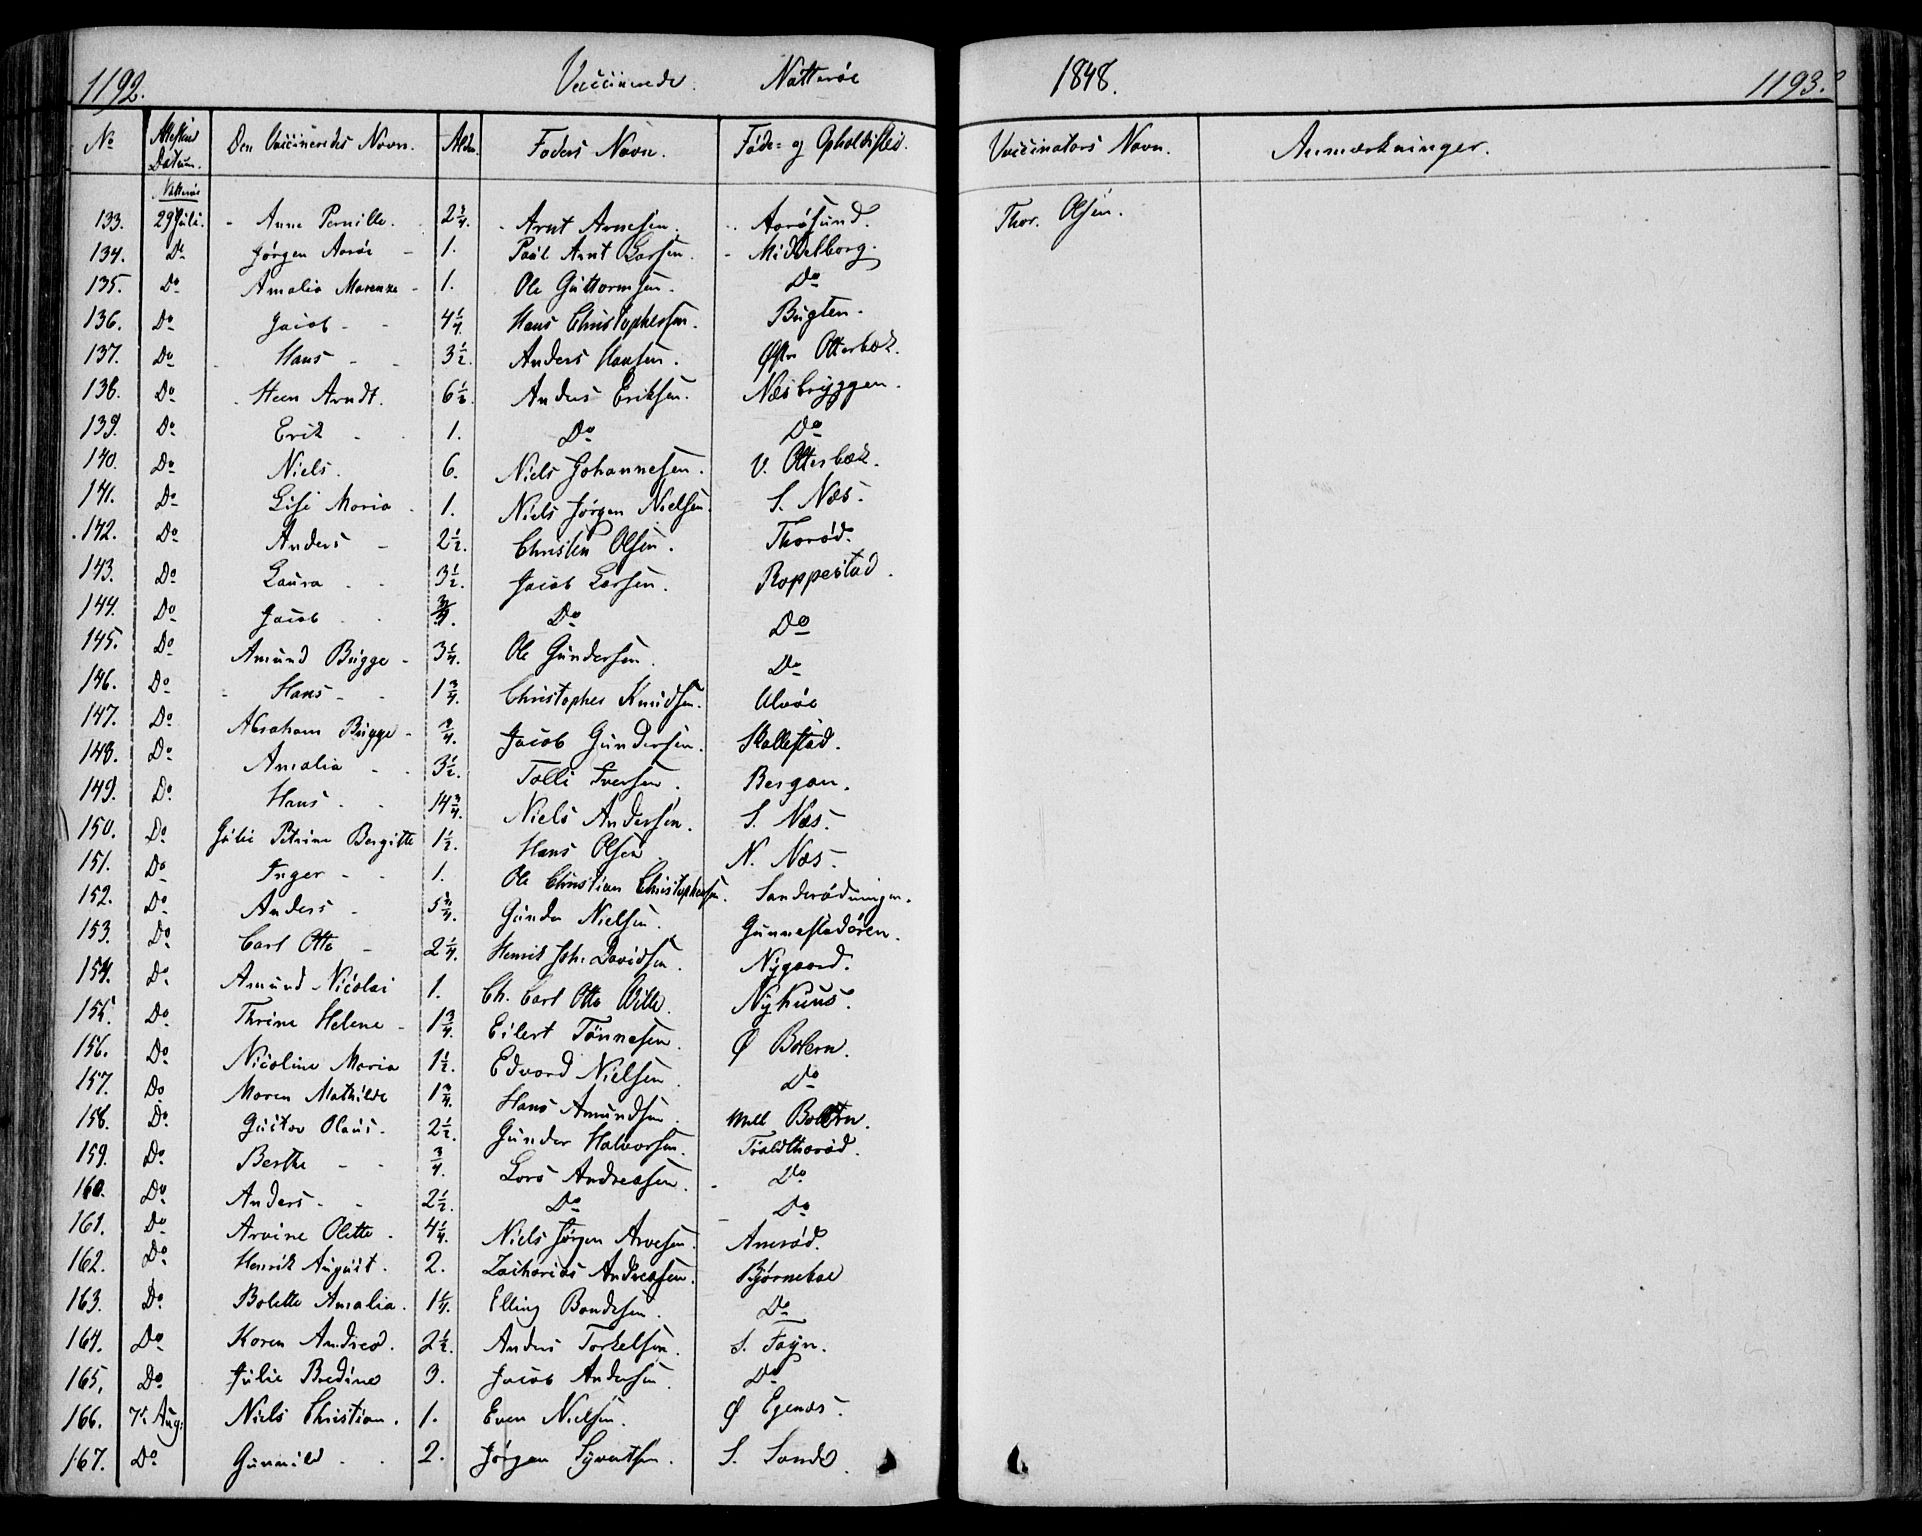 1192. Vaccinerede Nøtterøe 1848. 1193.
No Attestens Datum. Den Vaccineredes Navn. Alder. Faders Navn. Føde- og Opholdssted. Vaccinators Navn. Anmærkninger.
Nøtterøe
133. 29 Juli. Anne Pernille. 2 3/4. Arnt Arnesen. Aarøsund. Thor. Olsen.
134. Do Jørgen Aarøe 1. Paul Arnt Larsen. Middelborg.
135. Do Amalia Marenze 1. Ole Guttormsen. Do
136. Do Jacob 4 1/4. Hans Christophersen. Bugten.
137. Do Hans 3 1/2. Anders Hansen. Østr Otterbek.
138. Do Steen Arndt. 6 1/2. Anders Eriksen. Næsbryggen.
139. Do Erik 1. Do Do
140. Do Niels. 6. Niels Johannesen. V. Otterbek.
141. Do Lise Maria 1. Niels Jørgen Nielsen. S. Næs.
142. Do Anders 2 1/2. Christen Olsen. Thorød.
143. Do Laura 3 1/2. Jacob Larsen. Roppestad.
144. Do Jacob 3/4. Do Do
145. Do Amund Bugge 3 1/4. Ole Gundersen. Do
146. Do Hans 1 3/4. Christopher Knudsen. Ulvøe
147. Do Abraham Bugge 3/4. Jacob Gundersen. Skallestad.
148. Do Amalia 3 1/2. Tolli Iversen. Bergan.
149. Do Hans 14 3/4. Niels Andersen. S. Næs.
150. Do Julie Petrine Bergitte 1 1/2. Hans Olsen N. Næs.
151. Do Inger 1. Ole Christian Christophersen. Sanderødningen.
152. Do Anders 5 3/4. Gunder Nielsen. Gunnestadøren.
153. Do Carl Otto 2 1/4. Henrik Joh. Davidsen. Nygaard.
154. Do Amund Nicolai 1. Ch. Carl Otto Wille. Nyhuus.
155. Do Thrine Helene 1 3/4. Eilert Tønnesen. Ø Bolern.
156. Do Nicoline Maria 1 1/2. Edvard Nielsen. Do
157. Do Maren Mathilde 1 3/4. Hans Amundsen. Mell Bolern.
158. Do Gustav Olaus. 2 1/2. Gunder Halvorsen. Traldthorød.
159. Do Berthe 3/4. Lars Andreasen. Do
160. Do Anders 2 1/2. Do Do
161. Do Arvine Olette. 4 1/4. Niels Jørgen Arvesen. Amrød.
162. Do Henrik August. 2. Zacharias Andreasen. Bjørneboe
163. Do Bolette Amalia. 1 1/4. Elling Bondesen. Do
164. Do Karen Andrea. 2 1/2. Anders Torkelsen. S. Føyn.
165. Do Julie Bredine 3. Jacob Andersen. Do
166. 7 Aug: Niels Christian. 1. Even Nielsen. Ø Egenæs.
167. Do Gunnild 2. Jørgen Syvertsen. S. Sande.